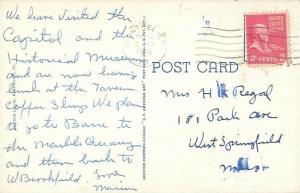 We have visited the
Capitol and the
Historical Museum
and are now having
lunch at the Tavern
Coffee Shop. We plan
to go to Barre to
the Marble Quarry
and then back to
W Brookfield. Love
POST CARD
Mrs H Regal
181 Park Ave
West Springfield
Mass
2 CENTS 2